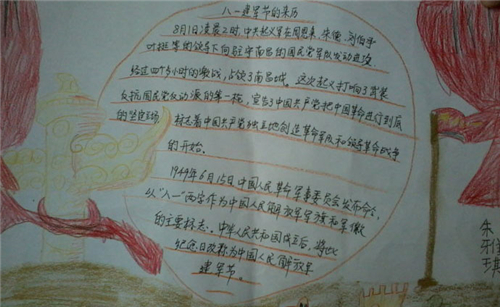 八一建军节的来历
8月1日凌晨2时，中共起义军在周恩来、朱德、刘伯承
叶挺等的领导下向驻守南昌的国民党军队发动进攻
经过四个多小时的激战，占领了南昌城。这次起义打响了武装
反抗国民党反动派的第一枪，宣告了中国共产党把中国革命进行到底
的坚定立场，标志着中国共产党独立地创造革命军队和领导革命战争
的开始。
1949年6月15日中国人民革命军事委员会发布命令，
以"八一"两字作为中国人民解放军军旗和军徽
的主要标志。中华人民共和国成立后，将此
纪念日改称为中国人民解放军
建军节。
朱